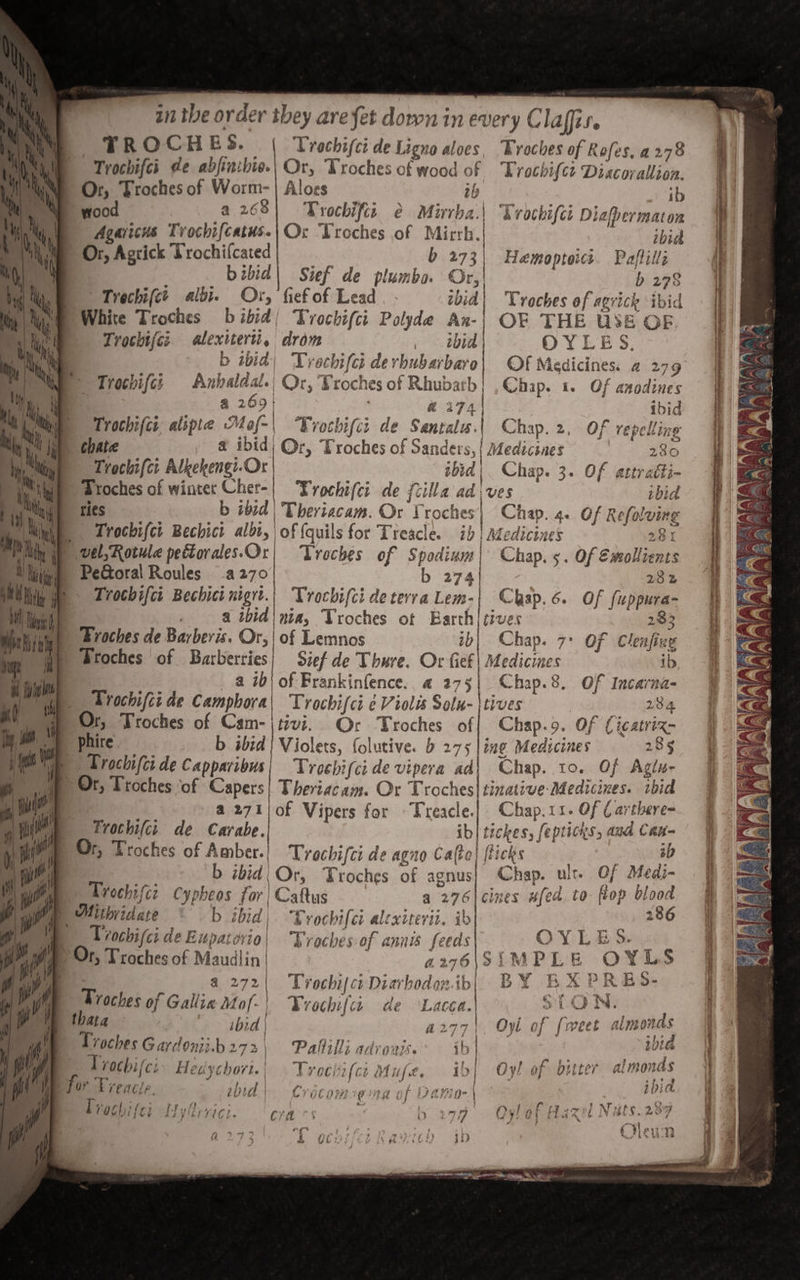 in the order they are ſet down in every Claſſis.
TROCHES.
Trochiſci de abſinthio.
Or, Troches of Worm-
wood a 268
Agaricus Trochiſcatus.
Or, Agrick Trochiſcated
b ibid
Trochiſci albi. Or,
White Troches b ibid
Trochiſci alexiterii,
b ibid
Trochiſci Anhaldal.
a 269
Trochiſci aliptæ Moſ-
chatæ a ibid
Trochiſci Alkekengi. Or
Troches of winter Cher-
ries b ibid
Trochiſci Bechici albi,
vel, Rotulæ pectorales. Or
Pectoral Roules a 270
Trochiſci Bechici nigri.
a ibid
Troches de Barberis. Or,
Troches of Barberries
a ib
Trochiſci de Camphora
Or, Troches of Cam-
phire b ibid
Trochiſci de Capparibus
Or, Troches of Capers
a 271
Trochiſci de Carabe.
Or, Troches of Amber.
b ibid
Trochiſci Cypheos for
Mithridate b ibid
Trochiſci de Eupatorio
Or, Troches of Maudlin
a 272
Troches of Gallia Moſ-
thata ibid
Troches Gardonii. b 272
Trochiſci Hedychori.
for Treacle. ibid
Trochiſci Hyſterici.
a 273
Trochiſci de Ligno aloes
Or, Troches of wood of
Aloes ib
Trochiſci è Mirrha.
Or Troches of Mirrh.
b 273
Sief de plumbo. Or,
ſief of Lead ibid
Trochiſci Polydæ An-
drom ibid
Trochiſci de rhubarbaro
Or, Troches of Rhubarb
a 274
Trochiſci de Santalis.
Or, Troches of Sanders,
ibid
Trochiſci de ſcilla ad
Theriacam. Or Troches
of ſquils for Treacle. ib
Troches of Spodium
b 274
Trochiſci de terra Lem-
nia, Troches of Earth
of Lemnos ib
Sief de Thure. Or ſief
of Frankinſence. a 275
Trochiſci è Violis Solu-
tivi. Or Troches of
Violets, ſolutive. b 275
Trochiſci de vipera ad
Theriacam. Or Troches
of Vipers for Treacle.
ib
Trochiſci de agno Caſto
Or, Troches of agnus
Caſtus a 276
Trochiſci alexiterii. ib
Troches of annis ſeeds
a 276
Trochiſci Diarhodon. ib
Trochiſci de Lacca.
a 277
Paſtilli adronis. ib
Trochiſci Muſæ. ib
Crocomagma of Damo-
cra b 277
Trochiſci Ramich ib
Troches of Roſes. a 278
Trochiſci Diacorallion.
ib
Trochiſci Diaſpermaton
ibid
Hæmoptoici Paſtilli
b 278
Troches of agrick ibid
OF THE USE OF
OYLES.
Of Medicines. a 279
Chap. 1. Of anodines
ibid
Chap. 2, Of repelling
Medicines 280
Chap. 3. Of attracti-
ves ibid
Chap. 4. Of Reſolving
Medicines 281
Chap. 5. Of Emollients
282
Chap. 6. Of ſuppura-
tives 283
Chap. 7. Of Clenſing
Medicines ib.
Chap. 8. Of Incarna-
tives 284
Chap. 9. Of Cicatriz-
ing Medicines 285
Chap. 10. Of Aglu-
tinative Medicines. ibid
Chap. 11. Of Carthere-
tickes, ſepticks, and Cau-
ſticks ib
Chap. ult. Of Medi-
cines uſed to ſtop blood
286
OYLES.
SIMPLE OYLS
BY EXPRES-
SION.
Oyl of ſweet almonds
ibid
Oyl of bitter almonds
ibid
Oyl of Hazil Nuts. 287
Oleum